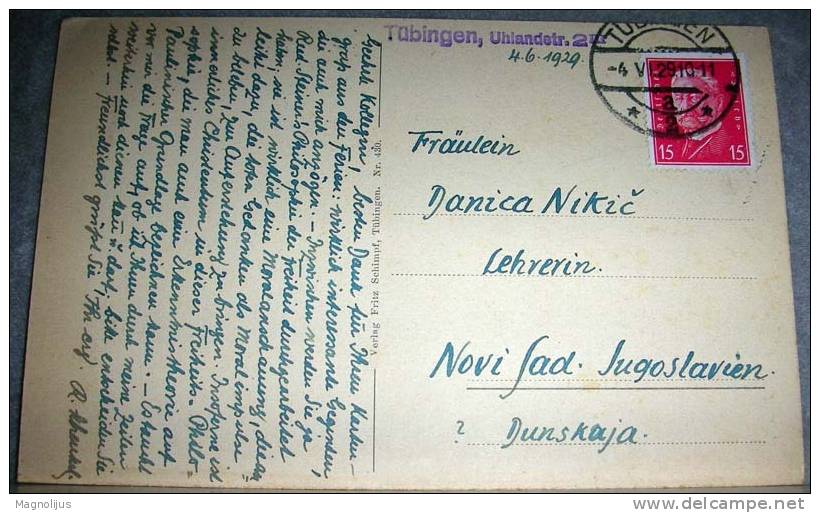 Tübingen, Uhlandstr. 2
4.6.1929.
TÜBINGEN
-4.VI.29.10-11
a
15 15
Fräulein
Danica Nikić
Lehrerin.
Novi Sad. Jugoslavien.
? Dunskaja.
Verlag Fritz Schimpf, Tübingen. Nr. 430.
Geehrte Kollegin, besten Dank für Ihren Karten-
gruß aus den Ferien, wirklich interessante Gegenden,
die auch mich anzögen. – Inzwischen werden Sie ja
Rud. Steiners Philosophie der Freiheit durchgearbeitet
haben; sie ist wirklich eine Moralanschauung, die
leiht dazu, die toten Gedanken als Moralimpulse
zu beleben, zur Auferstehung zu bringen. Insoferne ist
innerliches Christentum in dieser Freiheits-Philo-
sophie, die man auch eine Erkenntnistheorie auf
Paulinischer Grundlage bezeichnen kann. – Es taucht
vor mir die Frage auf, ob ich Ihnen durch meine Zeilen
weiterhin noch dienen kann u. darf, bitte entscheiden Sie
selbst. – Freundlichst grüßt Sie Ihr erg. R.
Magnolijus
delcampe.net